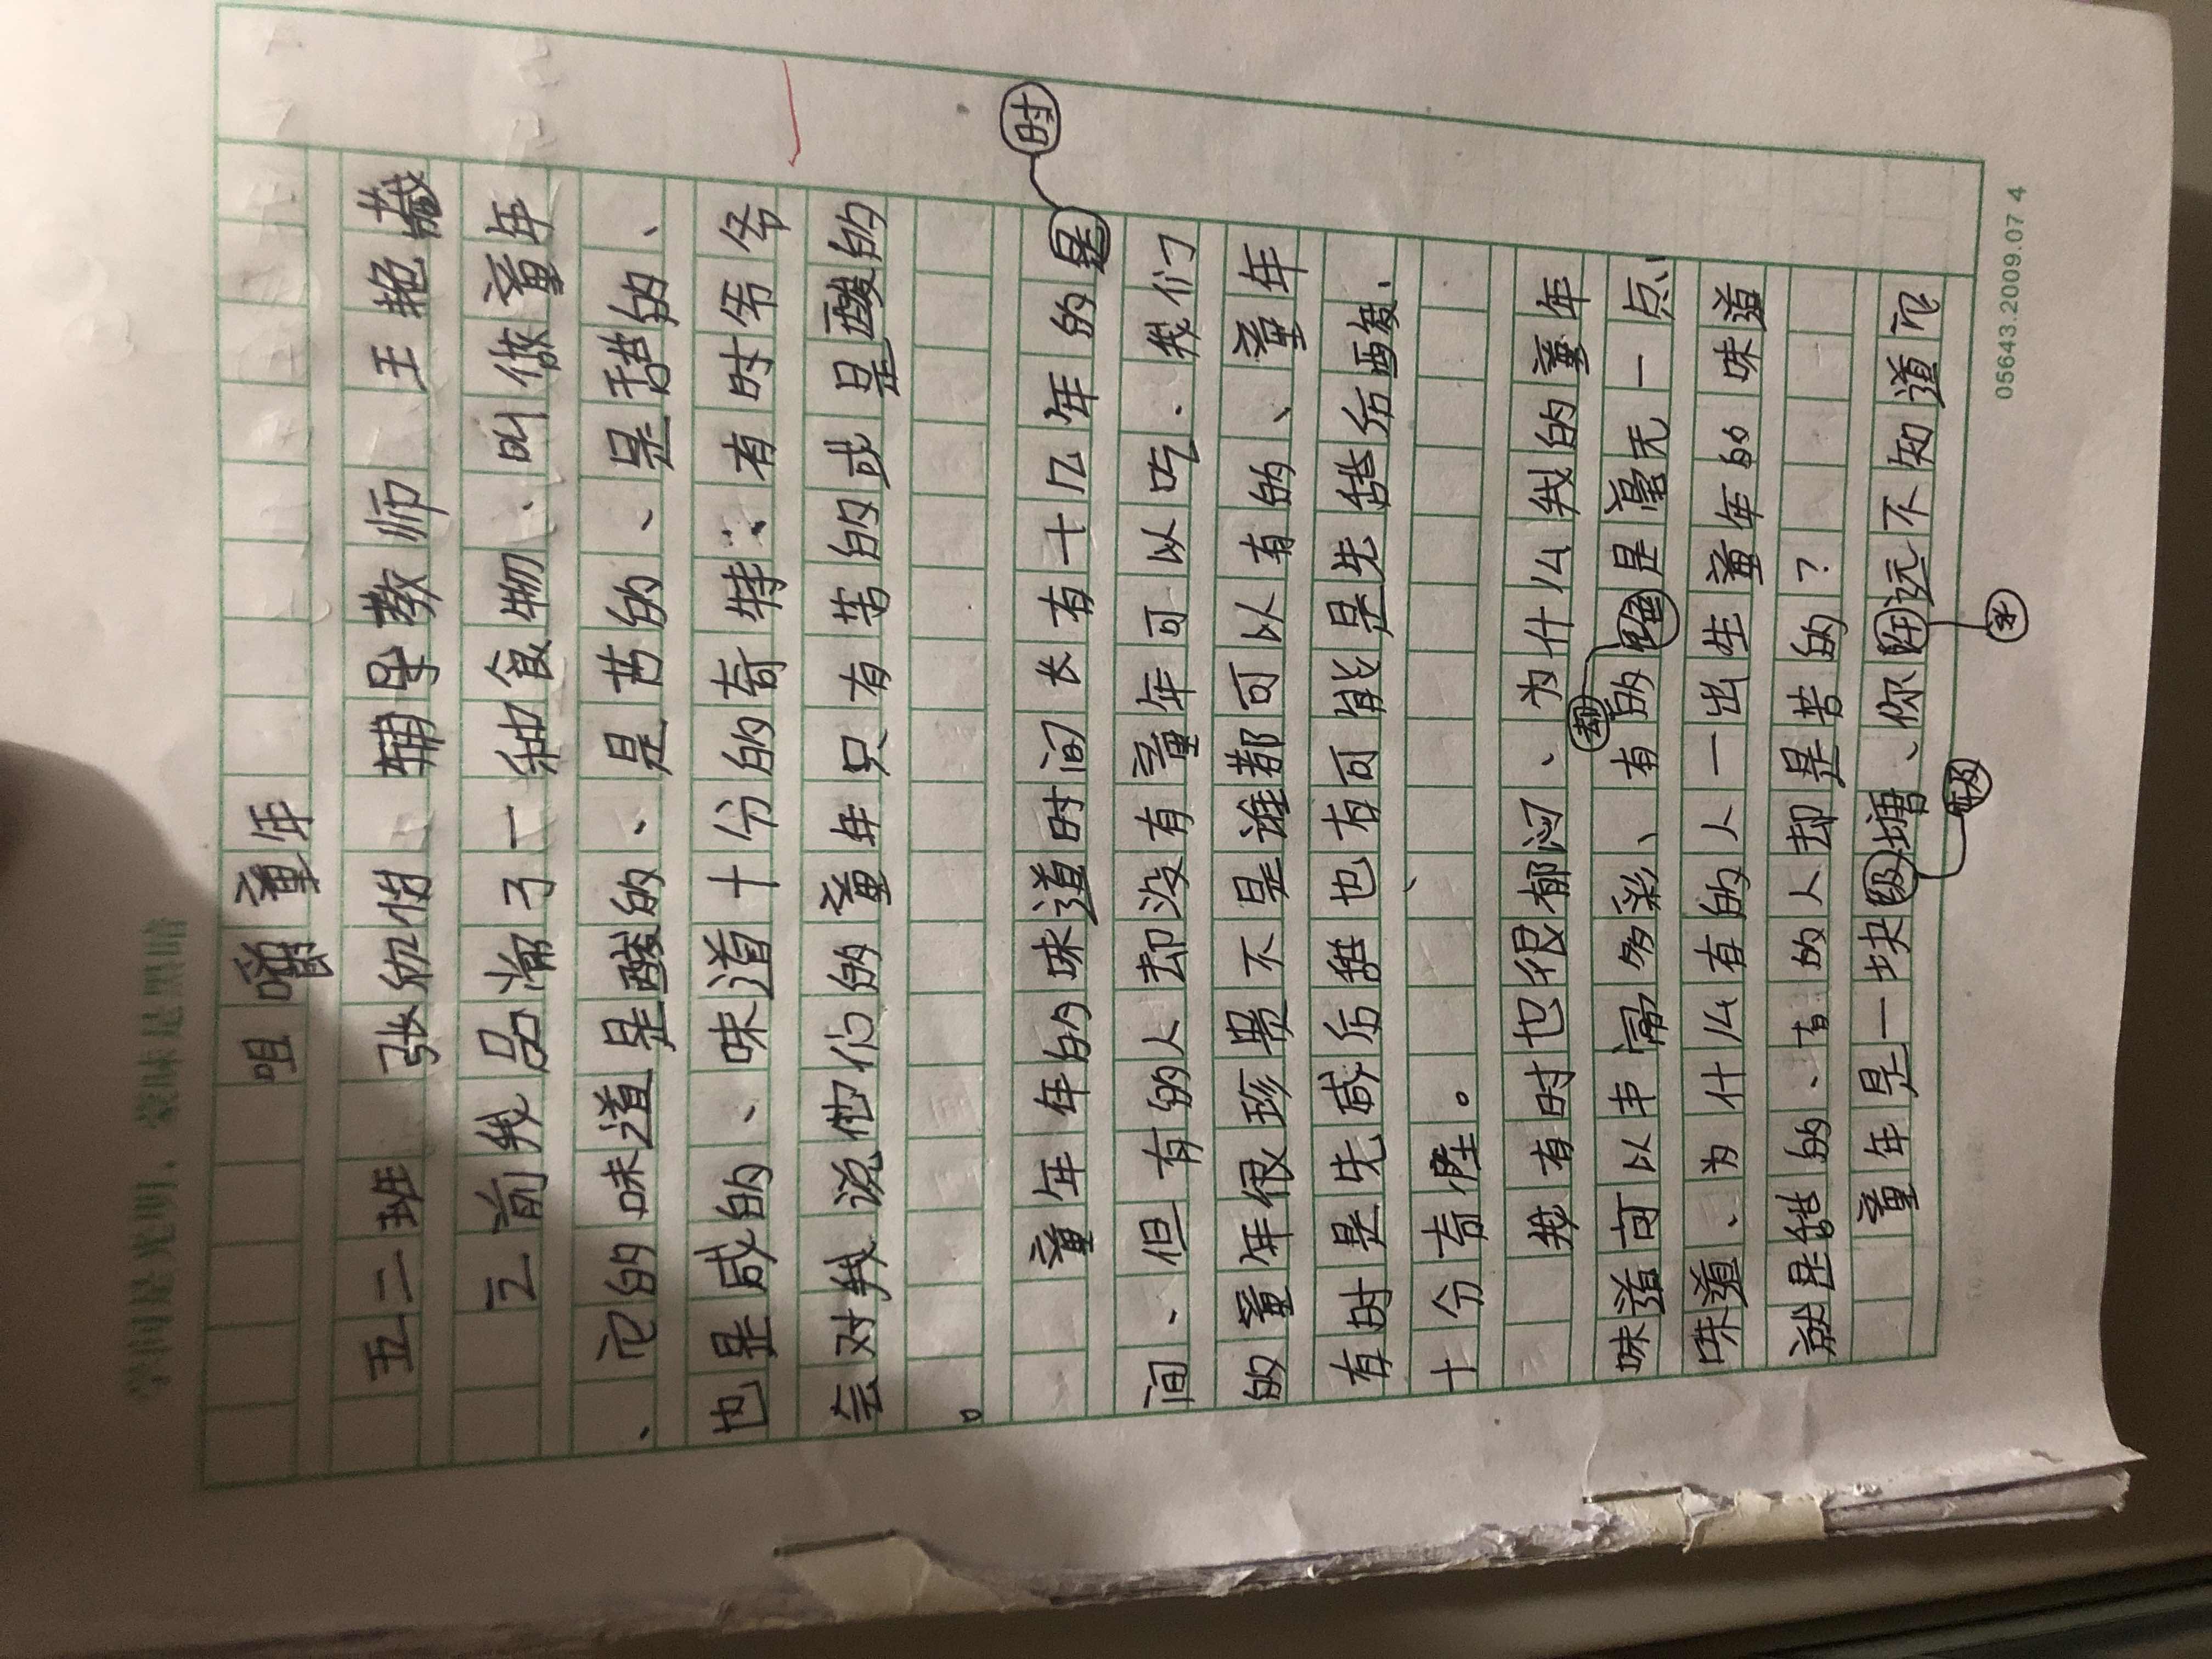 学问是光明，蒙昧是黑暗
咀嚼童年
五二班 张幼怡 辅导教师 王艳
之前我品尝了一种食物、叫做童年
、它的味道是酸的、是苦的、是甜的、
也是咸的、味道十分的奇特．有时爷爷
会对我说他们的童年只有苦的或是酸的
。
童年年的味道时间长有十几年的时
间、但有的人却没有童年可以吃．我们
的童年很珍贵不是谁都可以有的、童年
有时是先咸后甜也有可能是先甜后酸．
十分奇怪。
我有时也很郁闷、为什么我的童年
味道可以丰富多彩、有的却是毫无一点、
味道、为什么有的人一出生童年的味道
就是甜的．有的人却是苦的？
童年是一块级塘、你永远不知道它
05643.2009.07 4